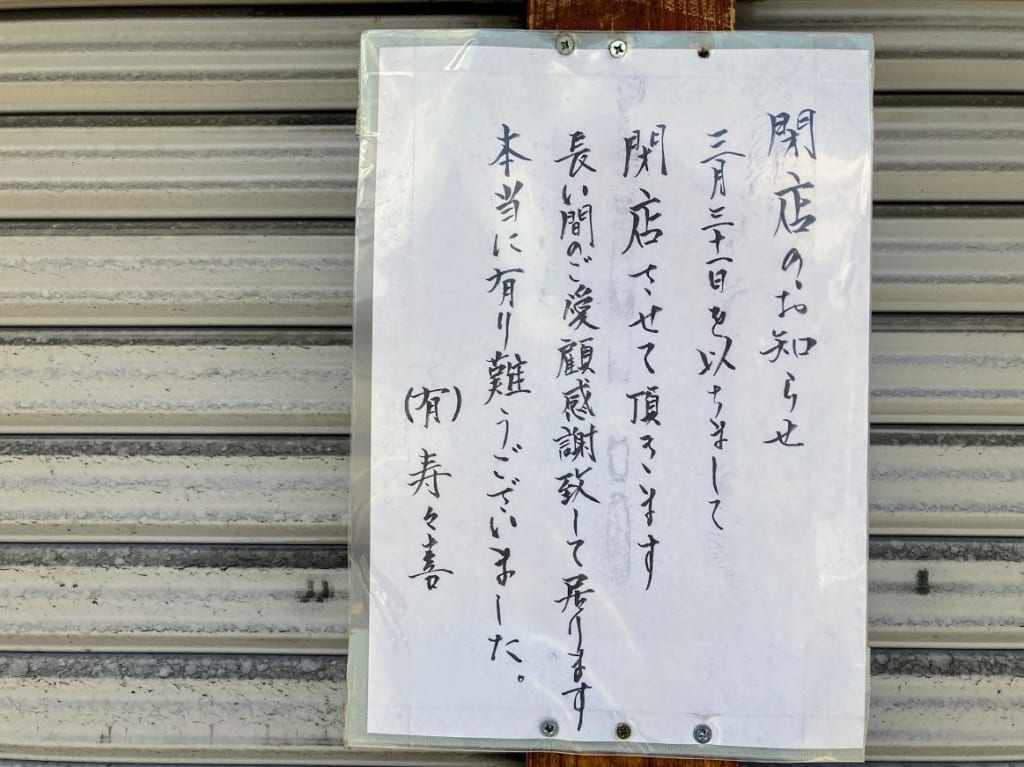 閉店のお知らせ
三月三十一日を以ちまして
閉店させて頂きます
長い間のご愛顧感謝致して居ります
本当に有り難うございました。
(有)寿々喜